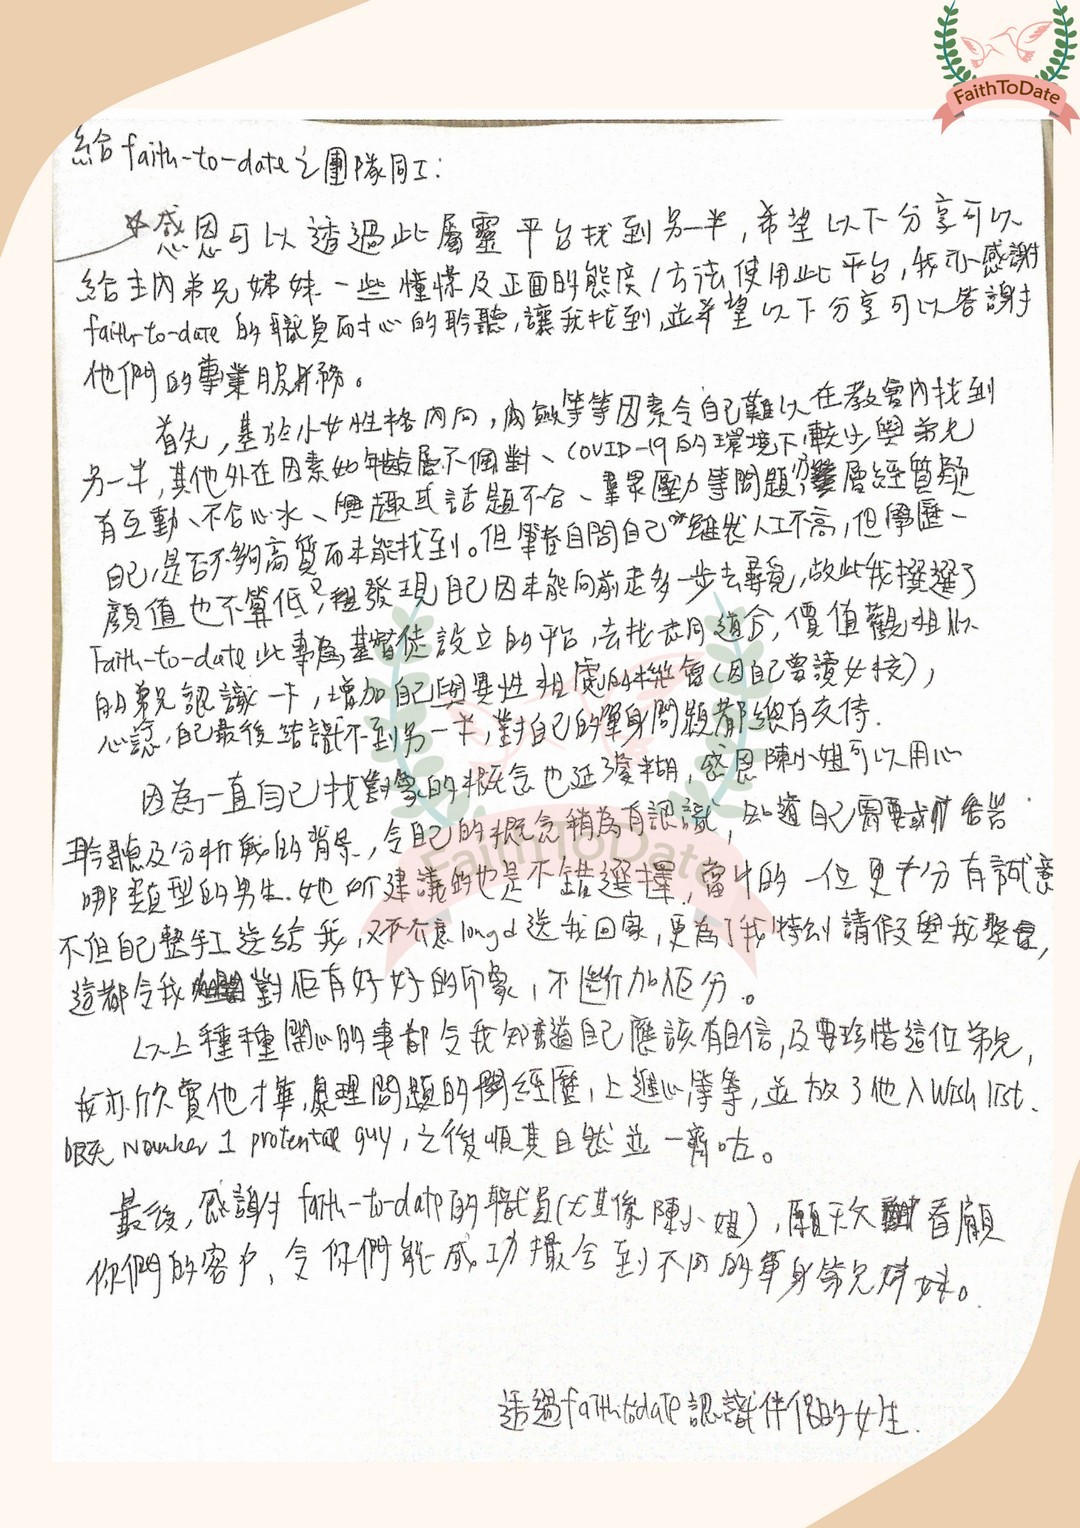 FaithToDate
給 faith-to-date 之團隊同工:
感恩可以透過此屬靈平台找到另一半,希望以下分享可以
給主內弟兄姊妹一些憧憬及正面的態度/方法使用此平台,我亦感謝
faith-to-date 的職員耐心的聆聽,讓我找到,並希望以下分享可以答謝
他們的專業服務。
首先,基於小女性格內向,內斂等等因素令自己難以在教會內找到
另一半,其他外在因素如年齡層不個對、COVID-19的環境下較少與弟兄
有互動、不合心水、興趣或話題不合、羣眾壓力等問題,層經質疑
自己,是否不夠高質而未能找到。但筆者自問自己雖然人工不高,但學歷一
顏值也不算低,發現自己因未能向前走多一步去尋覓,故此我揀選了
Faith-to-date 此專為基督徒設立的平台,去找志同道合,價值觀相似
的弟兄認識一下,增加自己與異性相處的機會(因自己曾讀女校),
心諗,自己最後結識不到另一半,對自己的單身問題都總有交待.
因為一直自己找對象的概念也延殘糊,感恩陳小姐可以用心
聆聽及分析我的背景,令自己的概念稍為有認識,知道自己需要或
哪類型的男生.她所建議的也是不錯選擇,當中的一位更十分有誠意
不但自己整手工送給我,又不介意long d送我回家,更為了我特別請假與我慶
這都令我對佢有好好的印象,不斷加佢分。
以上種種開心的事都令我知道自己應該有自信,及要珍惜這位弟兄,
我亦欣賞他才華,處理問題的經歷,上進心等等,並放了他入Wish list.
呢 Number 1 protential guy,之後順其自然並一齊咗。
最後,感謝 faith-to-date的職員(尤其係陳小姐),願天父看顧
你們的客户,令你們能成功撮合到不同的單身弟兄姊妹。
FaithToDate
透過faith-to-date認識伴侶的女生.